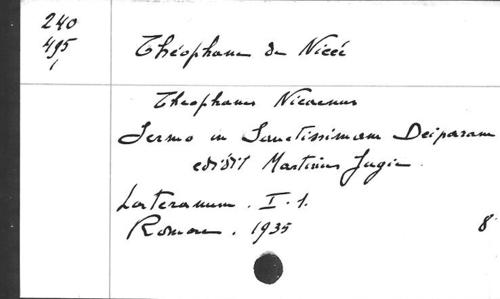 240
495
1
Théophane de Nicée
Theophanes Nicaenus
Sermo in Sanctissimam Deiparam
edidit Martinus Jugie.
Lateranum. I. 1.
Romae. 1935
8°